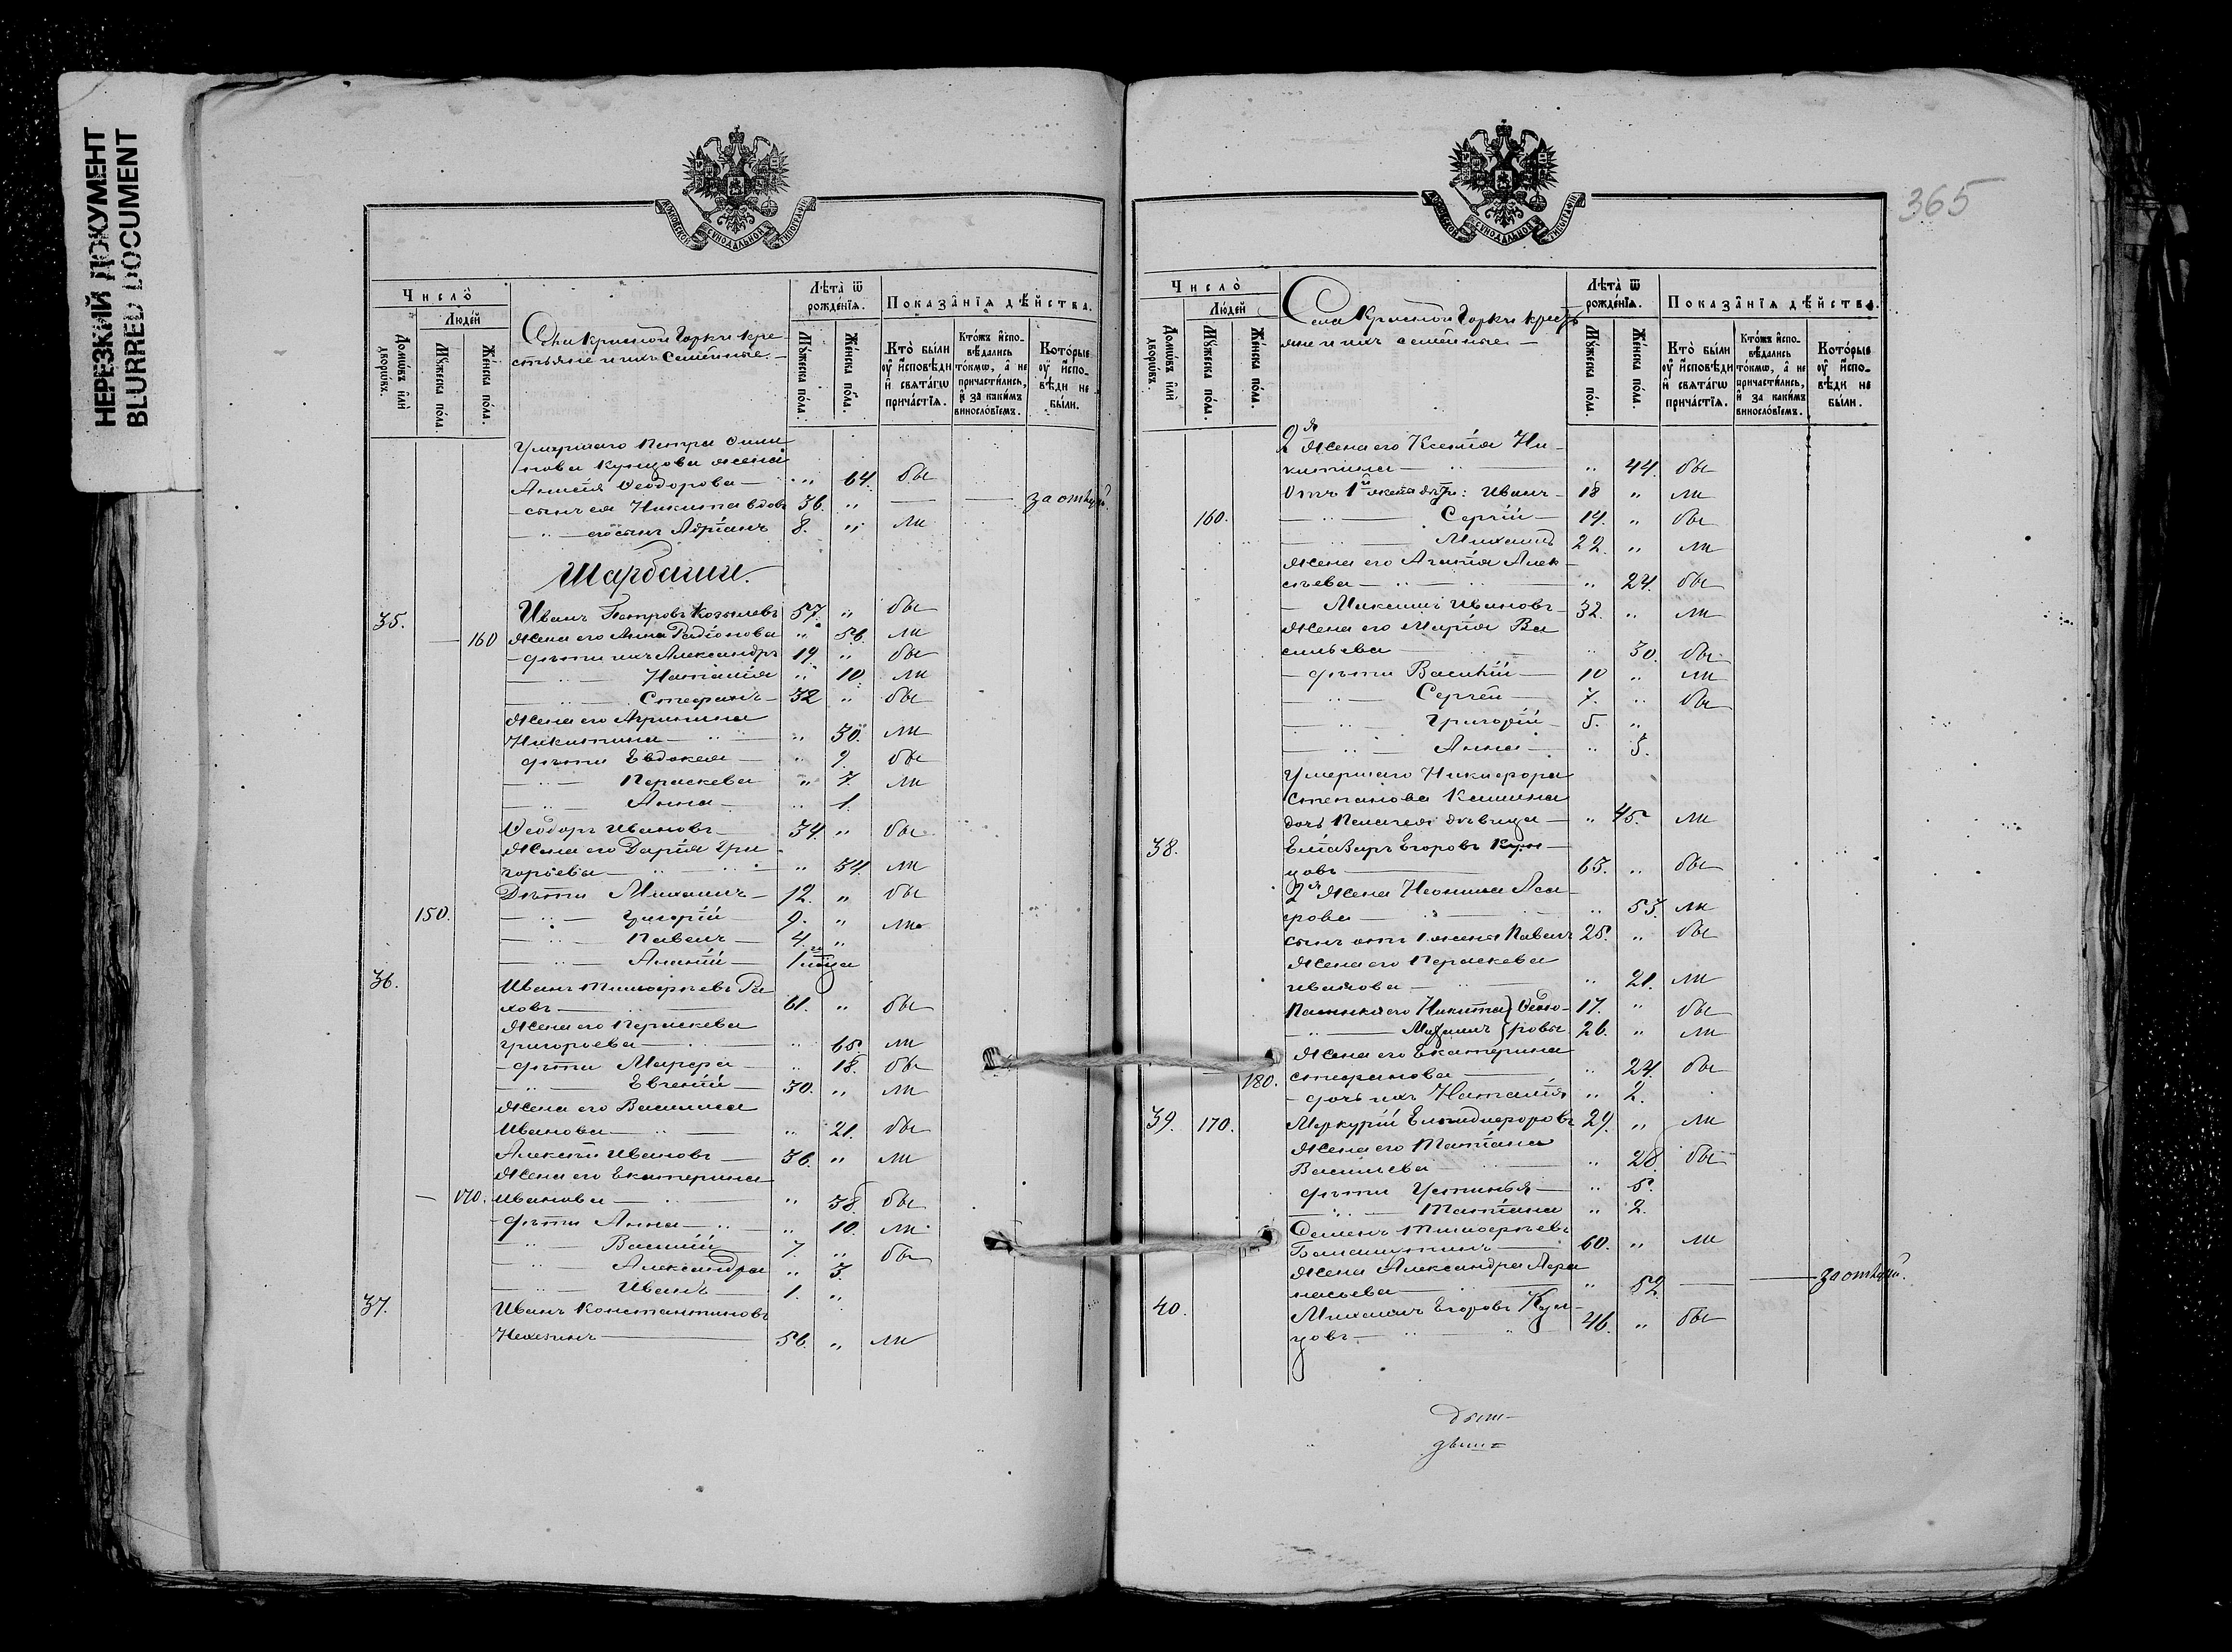 НЕРЕЗКИЙ ДОКУМЕНТ
BLURRED DOCUMENT
МОСКОВСКОЙ СѴНОДАЛЬНОЙ ТИПОГРАФІИ
Число̀
Людей
Домѡвъ или дворѡвъ.
Мꙋжеска пола.
Женска пола.
Села Красной Горки кре-
стьяне и ихъ семейные.
Лѣта̀ ѿ рожденїѧ.
Мꙋжеска пола.
Женска пола.
Показанїѧ дѣйства.
Кто̀ были оу исповѣди и свѧтагѡ причастїѧ.
Ктожъ исповѣдались токмѡ, а не причастились, и за какимъ винословїемъ.
Которые оу исповѣди не были.
Умершаго Петра
нова Кузнцова жена
Анисія Ѳеодорова — " 64. бы
- сынъ ея Никита вдов 36. " — — за отлуч.
— " — его сынъ Адріанъ 8. " ли
35. Иванъ Петровъ 57. " бы
— 160 Жена его Анна Радіонова " 56. ли
- дѣти ихъ Александръ 19. " бы
— " — Наталія " 10. ли
— " — Стефанъ - 32 " бы
Жена его Агрипина
Никитина — " 30. ли
дѣти Евдокия — " 9. бы
— " — Параскева " 7. ли
— " — Анна - " 1.
Ѳеодоръ Ивановъ — 34. " бы
Жена его Дарія Гри
горьева — " 34. ли
Дѣти Михаилъ — 12. " бы
150. — " — Григорій — 9. " ли
— " — Павелъ — 4. "
— " — Алексій — 1
36. Иванъ Тимофеевъ Ра
ховъ — 61. " бы
Жена его Параскева
Григорьева — " 65 ли
- дѣти Марфа — " 18. бы
— " — Евгеній — 30. " ли
Жена его Василиса
Иванова — " — " 21. бы
Алексѣй Ивановъ — 36. " ли
Жена его Екатерина
— 170. Иванова — " 38. бы
- дѣти Анна — " " 10. ли
— " — Василій 7. " бы
— " — Александра " 3.
— " — Иванъ 1. "
37. Иванъ Константиновъ
56. " ли
365
МОСКОВСКОЙ СѴНОДАЛЬНОЙ ТИПОГРАФІИ
Число̀
Людей
Домѡвъ или дворѡвъ.
Мꙋжеска пола.
Женска пола.
Села Красной Горки крестъ
яне и ихъ семейные. —
Лѣта̀ ѿ рожденїѧ.
Мꙋжеска пола.
Женска пола.
Показанїѧ дѣйства.
Кто̀ были оу исповѣди и свѧтагѡ причастїѧ.
Ктожъ исповѣдались токмѡ, а не причастились, и за какимъ винословїемъ.
Которые оу исповѣди не были.
2я Жена его Ксенія Ни-
китина — " 44. бы
Отъ 1й жены дѣти: Иванъ - 18 " ли
160. — " — Сергій — 14. " бы
— " — Михаилъ 22. " ли
Жена его Агапія Алек
сѣева — " — " 24. бы
— Максимъ Ивановъ — 32. " ли
Жена его Марія Ва
сильева " 30. бы
- дѣти Василій — 10 " ли
— " — Сергей — 7. " бы
— " — Григорій — 5. "
— " — Анна — " 5.
Умершаго Никифора
Степанова Камина
дочь Пелагея дѣвица — " 45. ли
38. Елиазаръ Егоровъ Кузн
цовъ — 63. " бы
2я Жена Неонила Аса
фова — " 53. ли
сынъ отъ 1 жены Павелъ 25. " бы
Жена его Параскева
Иванова — " 21. ли
Пасынки его Никита} Ѳедо- 17. " бы
— " — Михаилъ} ровы 26. " ли
Жена его Екатерина
180. Стефанова — " 24. бы
- дочь ихъ Наталія " 2.
39. 170. Меркурій Елпидифоровъ 29. " ли
Жена его Татіана
Васильева — " 28. бы
дѣти Устинья — " 5.
— " — Татіана " 2.
Семенъ Тимофеевъ
60. " ли
Жена Александра Афа
насьева — " 52. — — за отлуч.
40. Михаилъ Егоровъ Кузн-
цовъ — " 46. " бы